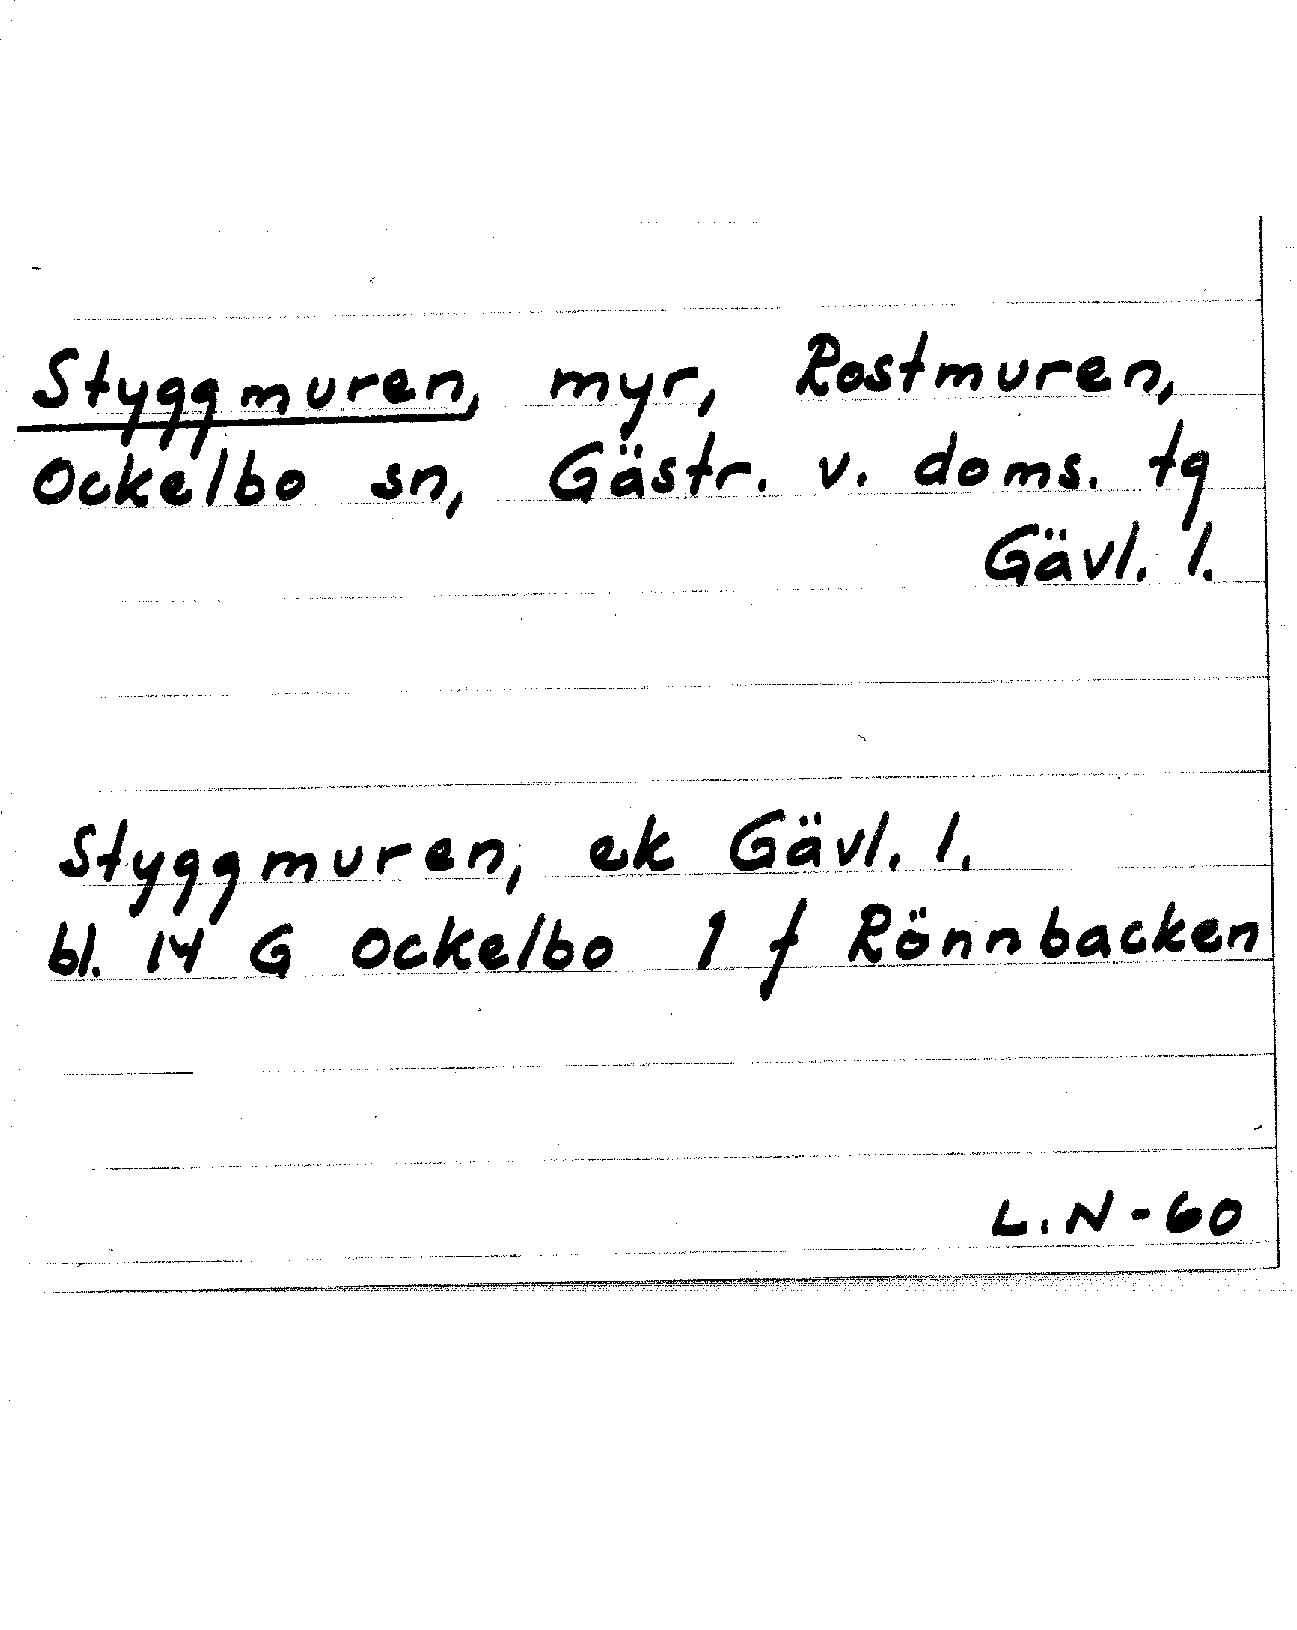 Styggmuren, myr, Rostmuren,
Ockelbo sn, Gästr. v. doms. tg
Gävl. l.
Styggmuren, ek Gävl. l.
bl. 14 G Ockelbo 1 f Rönnbacken
L.N-60